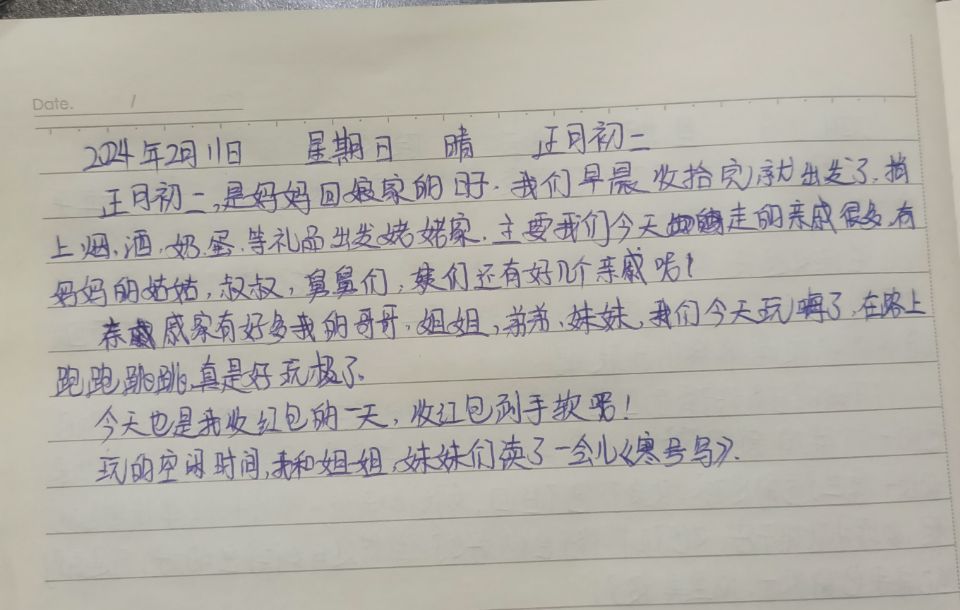 Date. /
2024年2月11日 星期日 晴 正月初二
正月初二,是妈妈回娘家的日子.我们早晨收拾完就出发了.捎
上烟、酒、奶、蛋、等礼品出发姥姥家.主要我们今天走的亲戚很多,有
妈妈的姑姑,叔叔,舅舅们,姨们还有好几个亲戚呢!
亲戚家有好多我的哥哥,姐姐,弟弟、妹妹,我们今天玩嗨了,在路上
跑跑跳跳,真是好玩极了、
今天也是我收红包的一天,收红包到手软嘞!
玩的空闲时间,我和姐姐,妹妹们读了一会儿《寒号鸟》.